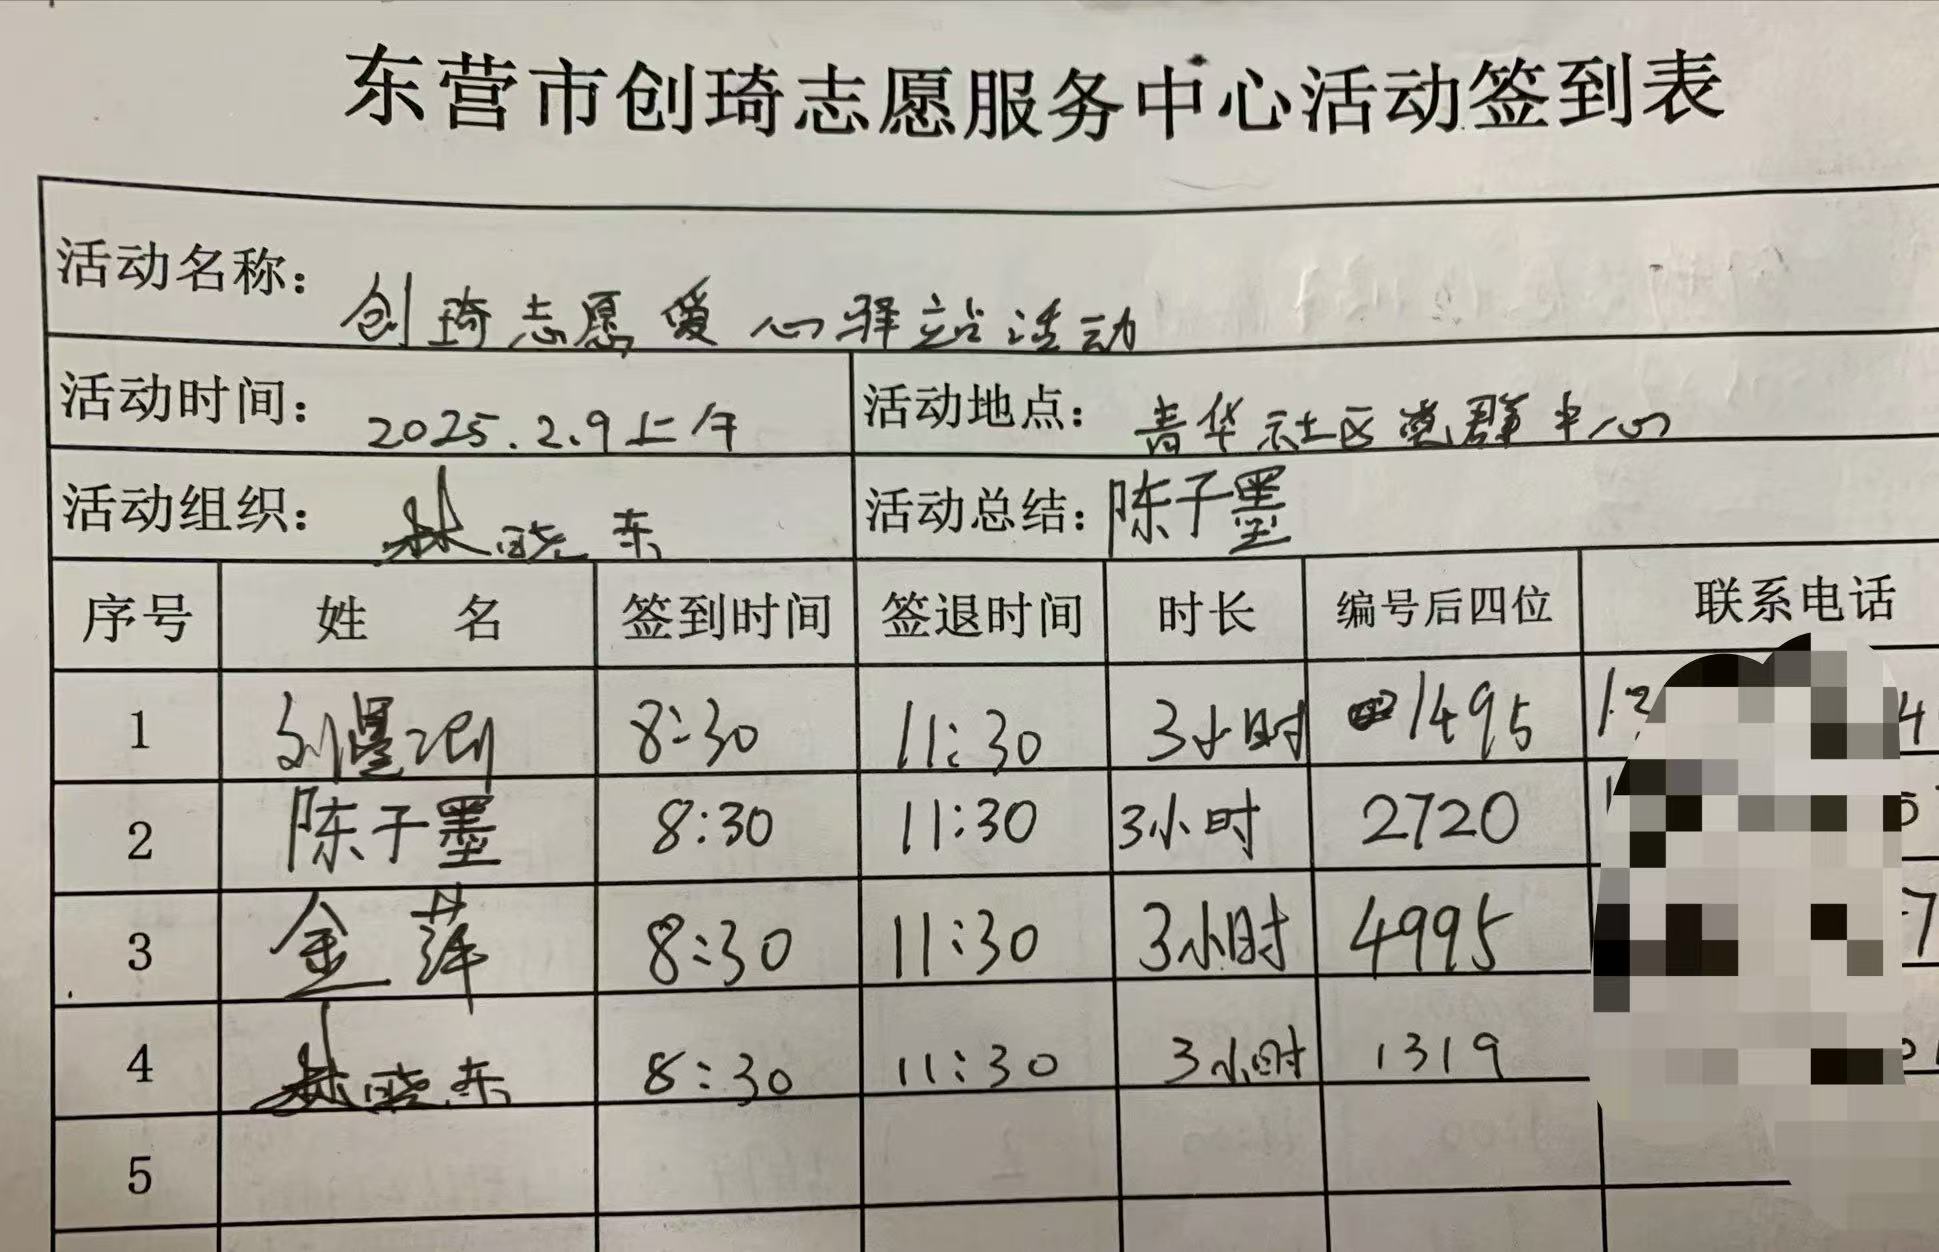 东营市创琦志愿服务中心活动签到表
活动名称： 创琦志愿爱心驿站活动
活动时间： 2025.2.9上午 活动地点： 青华社区党群中心
活动组织： 林晓东 活动总结： 陈子墨
序号 姓 名 签到时间 签退时间 时长 编号后四位 联系电话
1 刘 8:30 11:30 3小时 1495
2 陈子墨 8:30 11:30 3小时 2720
3 金萍 8:30 11:30 3小时 4995
4 林晓东 8:30 11:30 3小时 1319
5